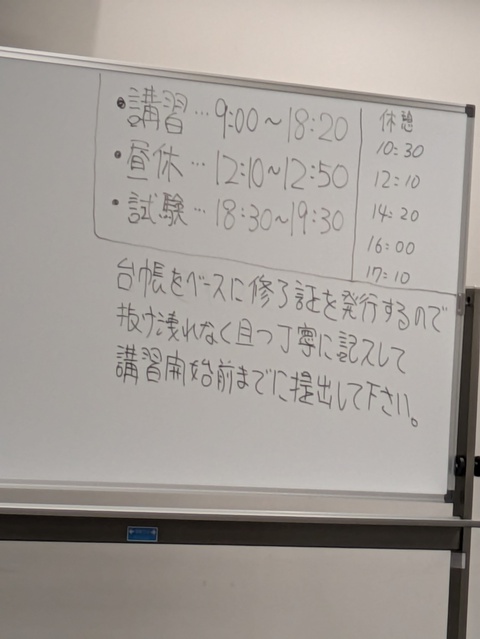 ・講習…9:00～18:20
・昼休…12:10～12:50
・試験…18:30～19:30
休憩
10:30
12:10
14:20
16:00
17:10
台帳をベースに修了証を発行するので
抜け洩れなく且つ丁寧に記入して
講習開始前までに提出して下さい。